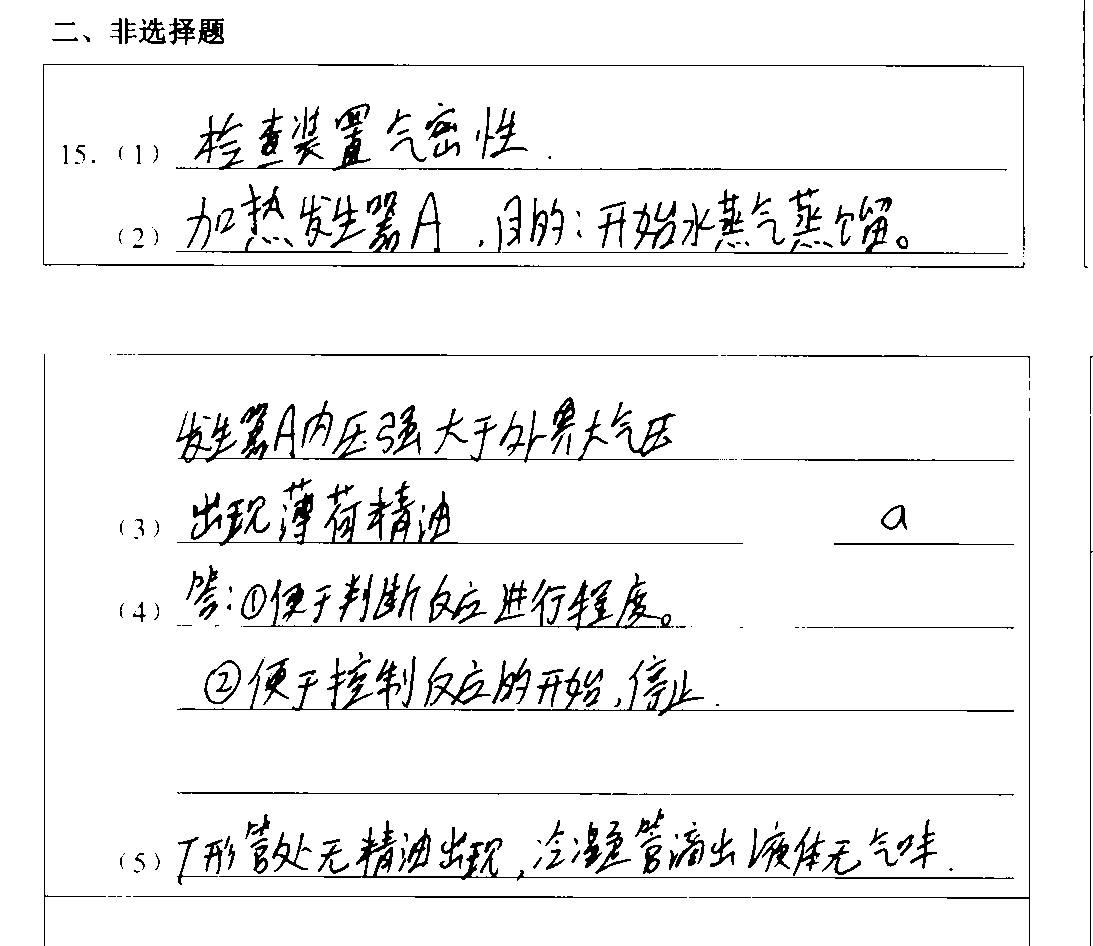 二、非选择题
15.（1） 检查装置气密性.
（2） 加热发生器A,目的:开始水蒸气蒸馏。
发生器A内压强大于外界大气压
（3） 出现薄荷精油 a
（4） 答:①便于判断反应进行程度。
②便于控制反应的开始,停止.
（5） T形管处无精油出现,冷凝管滴出液体无气味.